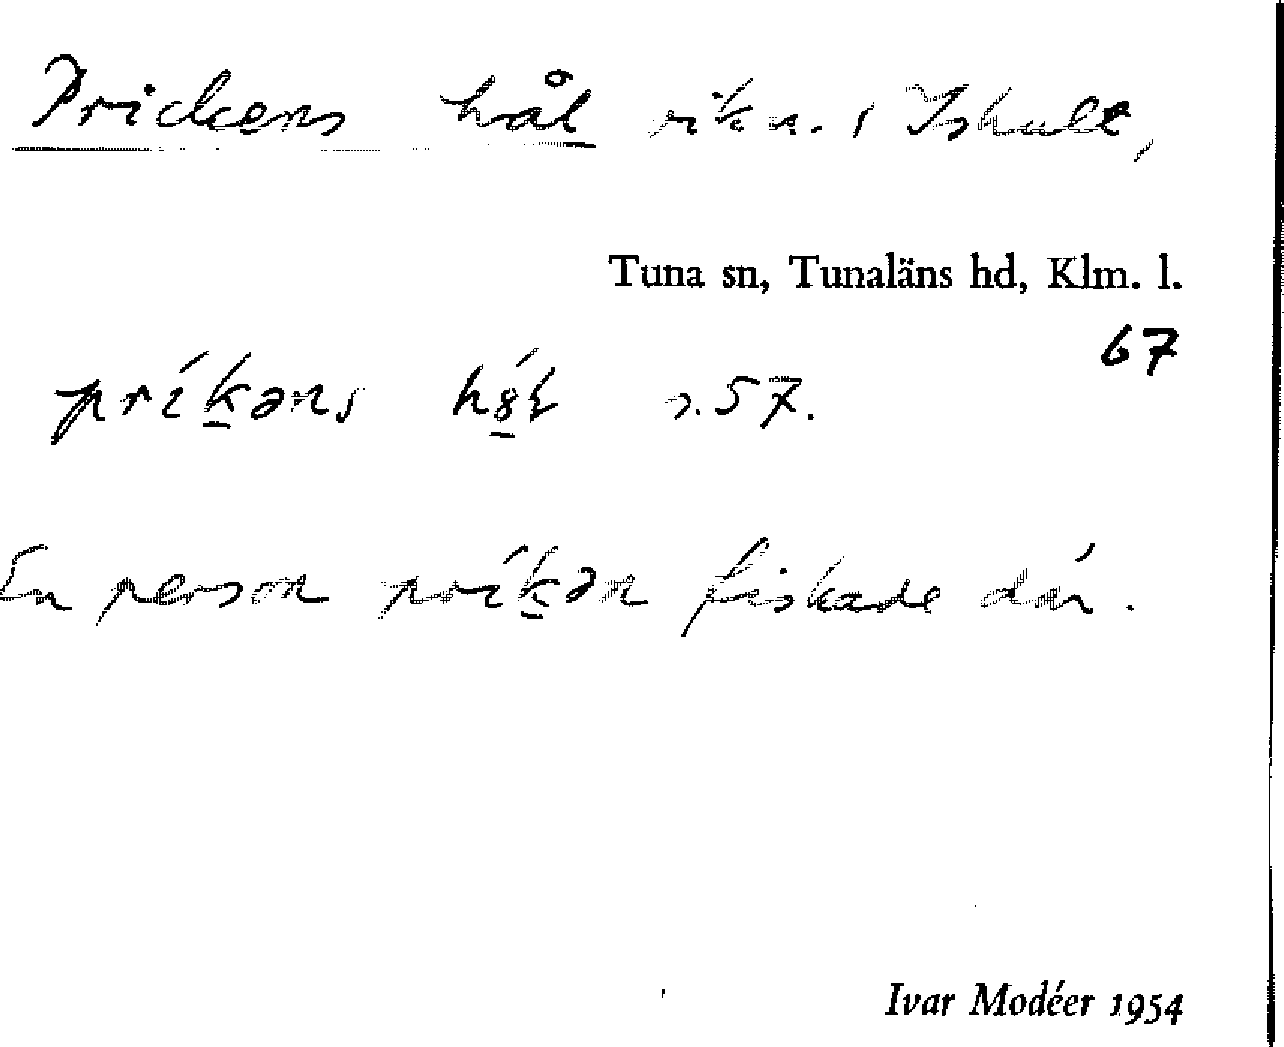 Prickens hål vik n. i Ishult,
Tuna sn, Tunaläns hd, Klm. l.
67
príkəns s. 57.
En person príkən fiskade där.
Ivar Modéer 1954